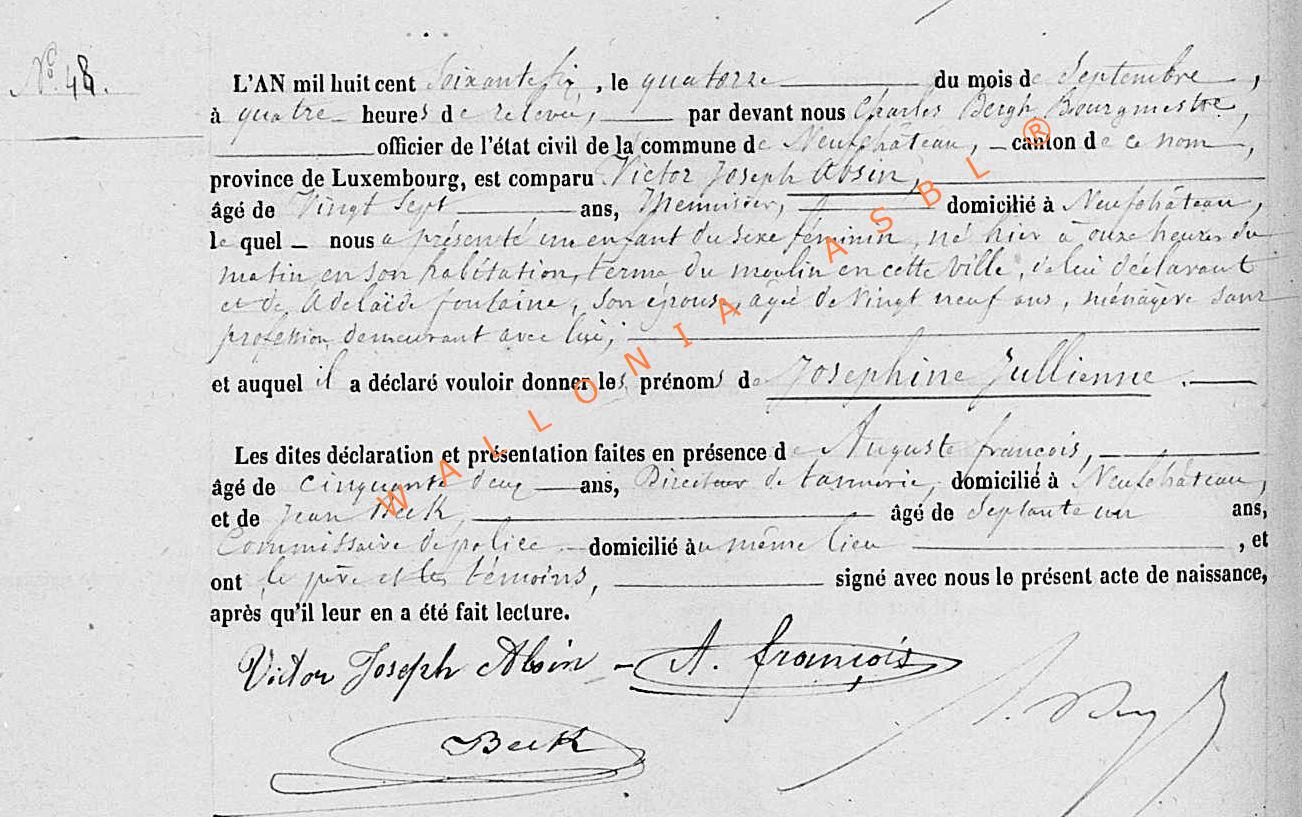 N° 48.
L'AN mil huit cent Soixante six, le quatorze du mois de Septembre,
à quatre heures de relevée, par devant nous Charles Bergh, Bourgmestre,
officier de l'état civil de la commune de Neufchâteau, canton de ce nom,
province de Luxembourg, est comparu Victor Joseph Absin,
âgé de Vingt Sept ans, Menuisier, domicilié à Neufchâteau,
lequel nous a présenté un enfant du sexe féminin, né hier à onze heures du
matin en son habitation, terme du moulin en cette ville, de lui déclarant
et de Adelaïde fontaine, son épouse, agée de vingt neuf ans, ménagère sans
profession, demeurant avec lui,
et auquel il a déclaré vouloir donner les prénoms de Josephine Jullienne.
Les dites déclaration et présentation faites en présence de Auguste françois,
âgé de cinquante deux ans, Directeur de tannerie, domicilié à Neufchâteau,
et de Jean Beck, âgé de Septante un ans,
Commissaire de police domicilié au même lieu, et
ont le père et les témoins, signé avec nous le présent acte de naissance,
après qu'il leur en a été fait lecture.
Victor Joseph Absin - A. françois
Beck
WALLONIA ASBL ®